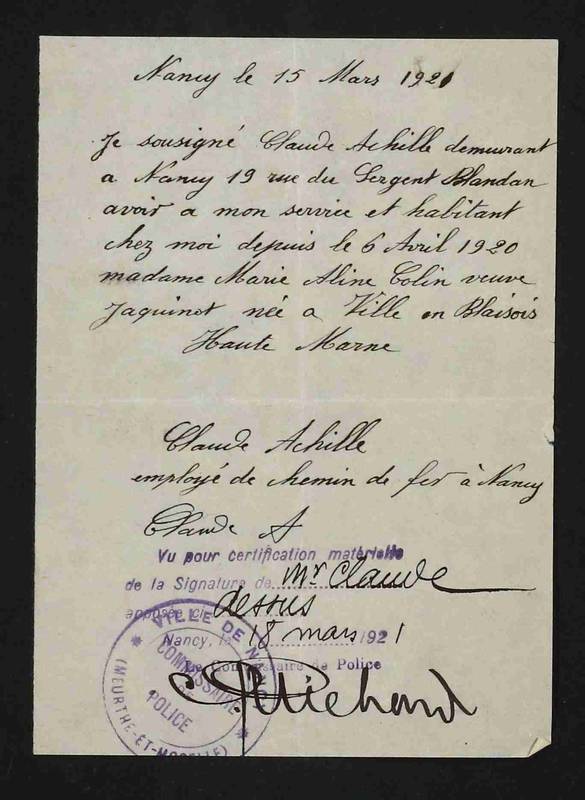 Nancy le 15 Mars 1921
Je sousigné Claude Achille demeurant
a Nancy 19 rue du Sergent Blandan
avoir a mon service et habitant
chez moi depuis le 6 Avril 1920
madame Marie Aline Colin veuve
Jaquinot née a Ville en Blaisois
Haute Marne
Claude Achille
employé de chemin de fer à Nancy
Claude A
Vu pour certification matérielle
de la Signature de Mr Claude
apposée ci dessus
Nancy, le 18 mars 1921
Le Commissaire de Police
VILLE DE NANCY
COMMISSAIRE
POLICE
(MEURTHE-ET-MOSELLE)